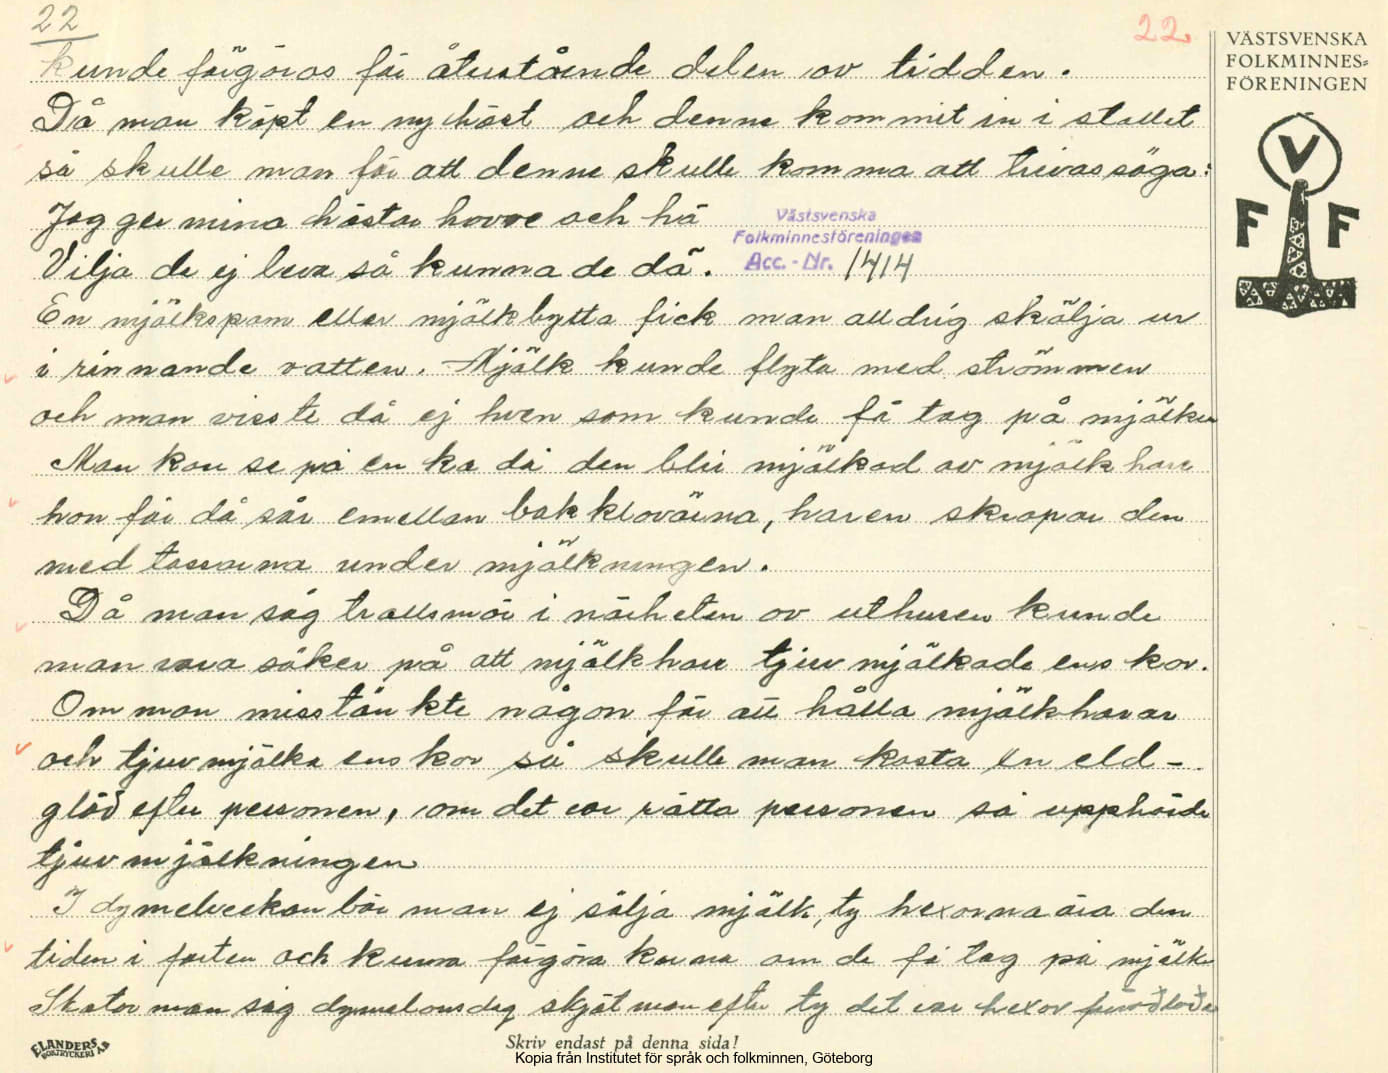 22
22.
VÄSTSVENSKA
FOLKMINNES=
FÖRENINGEN
V
F F
kunde förgöras för återstående delen av tidden.
Då man köpt en ny häst och denne kommit in i stallet
så skulle man för att denne skulle komma att trivas säga:
Jag ger mina hästar havre och hö
Vilja de ej leva så kunna de dö.
Västsvenska
Folkminnesföreningen
Acc. - Nr. 1414
En mjölkspann eller mjölkbytta fick man alldrig skölja ur
i rinnande vatten. Mjölk kunde flyta med strömmen
och man visste då ej hven som kunde få tag på mjölken
Man kan se på en ko då den blir mjölkad av mjölkhare
hon får då sår emellan bakklovärna, haren skrapar den
med tassarna under mjölkningen.
Då man såg trollsmör i närheten av uthusen kunde
man vara säker på att mjölkhare tjuvmjölkade ens kor.
Om man misstänkte någon för att hålla mjölkharar
och tjuvmjölka ens kor så skulle man kasta en eld-
glöd efter personen, om det var rätta personen så upphörde
tjuvmjölkningen
I dymelveckan bör man ej sälja mjölk, ty hexorna äro den
tiden i farten och kunna förgöra korna om de få tag på mjölken
Skator man såg dymelonsdag skjöt man efter ty det var hexor
ELANDERS
BOKTRYCKERI A.B
Skriv endast på denna sida!
Kopia från Institutet för språk och folkminnen, Göteborg